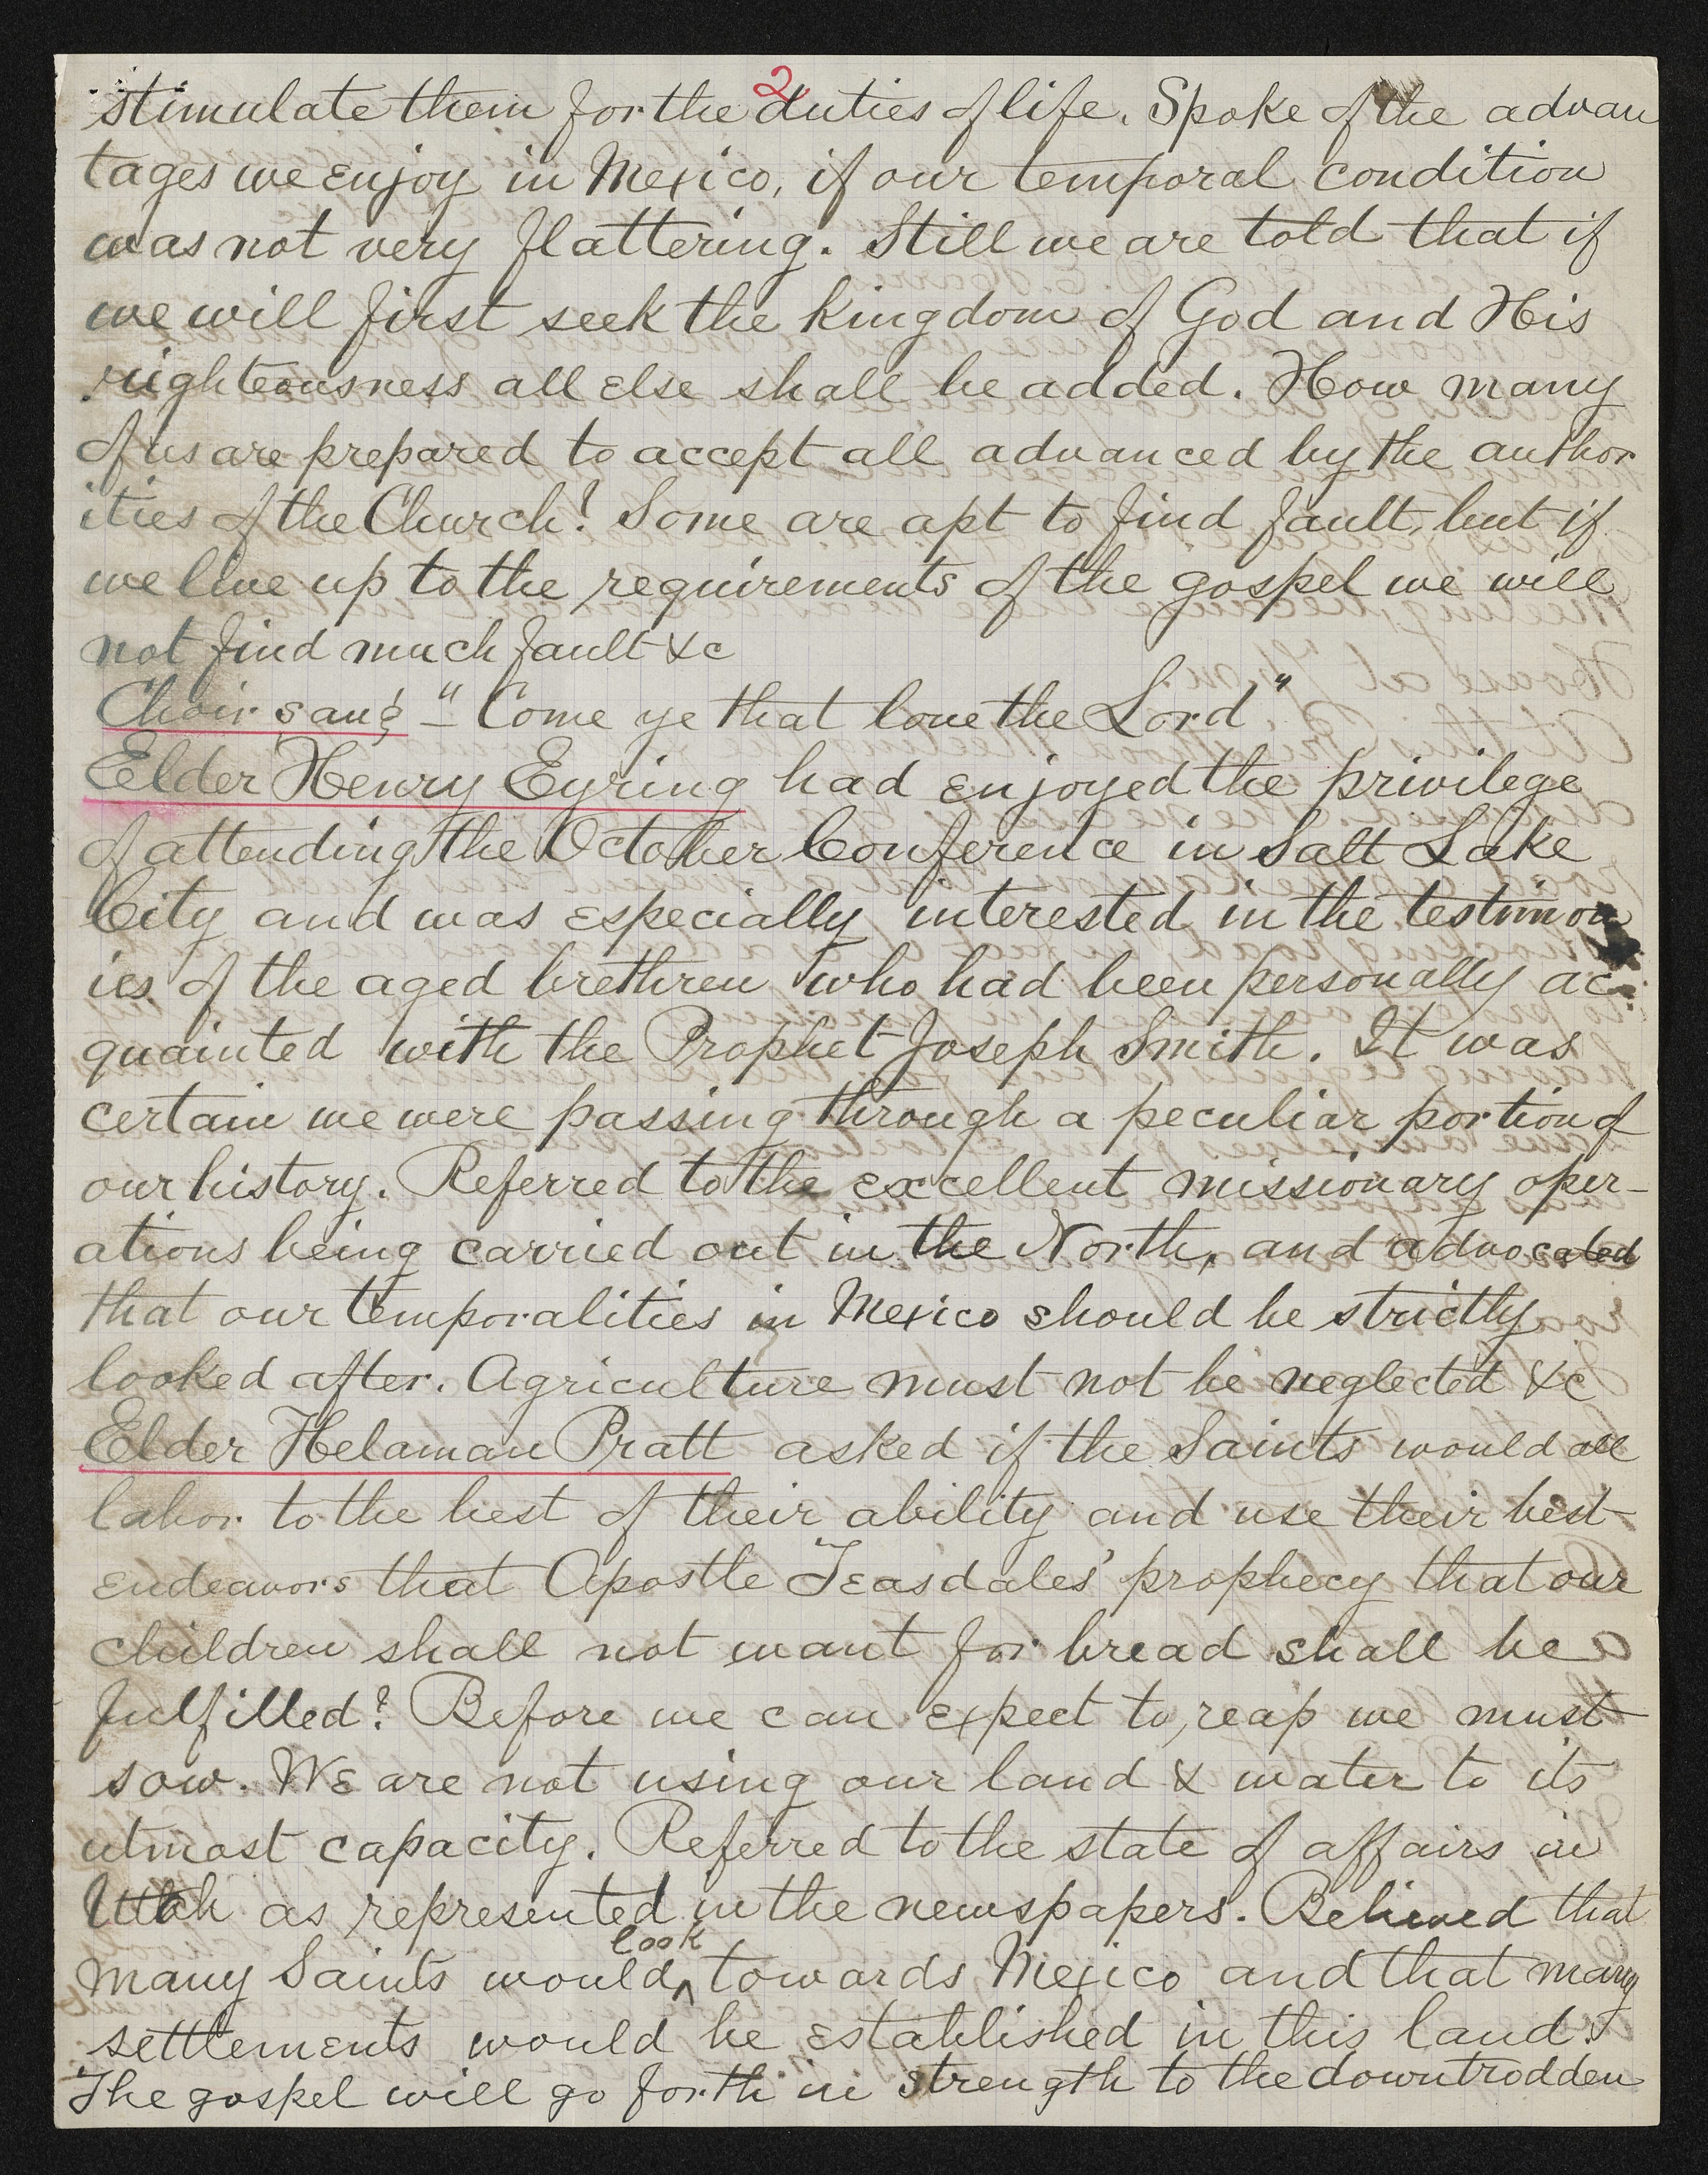 2
stimulate them for the duties of life. Spoke of the advan
tages we enjoy in Mexico, if our temporal condition
was not very flattering. Still we are told that if
we will first seek the kingdom of God and His
righteousness all else shall be added. How many
of us are prepared to accept all advanced by the author
ities of the Church? Some are apt to find fault, but if
we live up to the requirements of the gospel we will
not find much fault &c
Choir sang – "Come ye that love the Lord"
Elder Henry Eyring had enjoyed the privilege
of attending the October Conference in Salt Lake
City and was especially interested in the testimon
ies of the aged brethren who had been personally ac
quainted with the Prophet Joseph Smith. It was
certain we were passing through a peculiar portion of
our history. Referred to the excellent missionary oper-
ations being carried out in the North, and advocated
that our temporalities in Mexico should be strictly
looked after. Agriculture must not be neglected &c
Elder Helaman Pratt asked if the Saints would all
labor to the best of their ability and use their best
endeavors that Apostle Teasdales' prophecy that our
children shall not want for bread shall be
fulfilled? Before we can expect to reap we must
sow. We are not using our land & water to its
utmost capacity. Referred to the state of affairs in
Utah as represented in the newspapers. Believed that
look
many Saints would ^ towards Mexico and that many
settlements would be established in this land.
The gospel will go forth in strength to the downtrodden